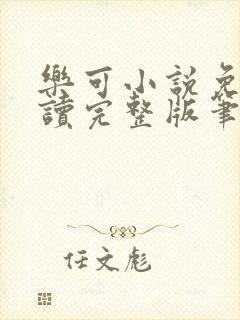 樂可小說免
讀完整版筆
任文彪